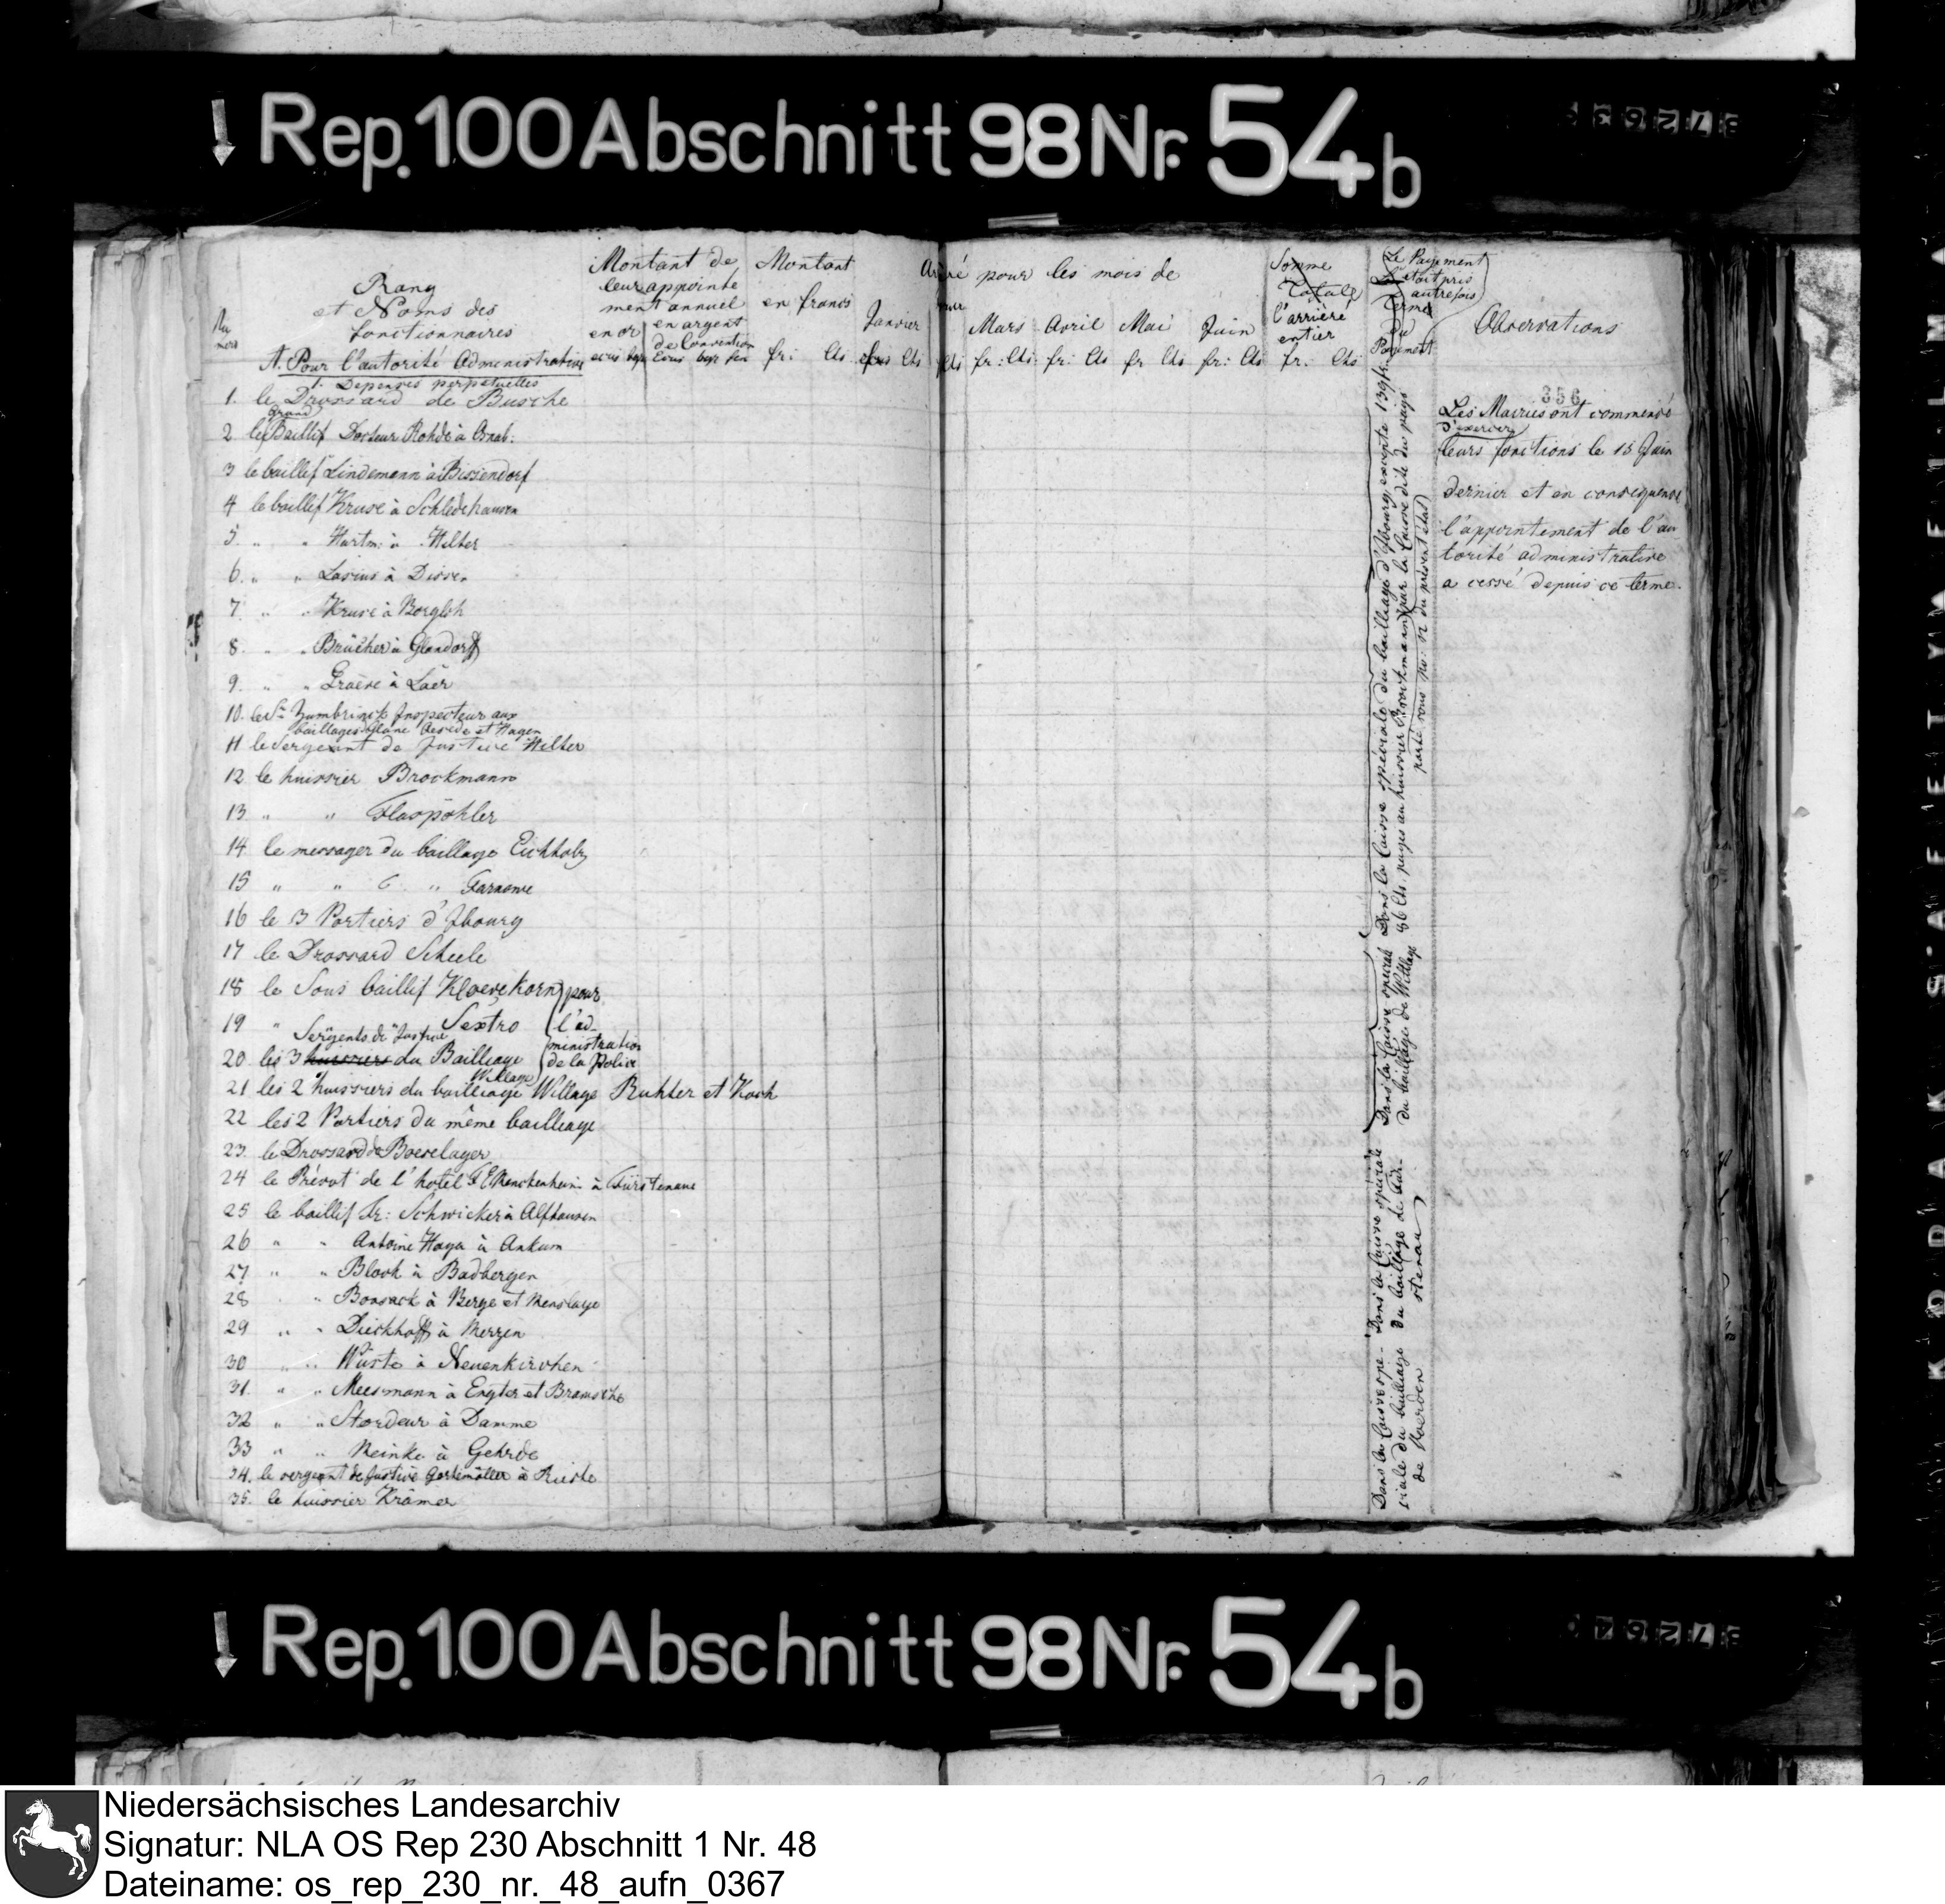 Rep. 100 Abschnitt 98 Nr. 54b
Rang
et Noms des
fonctionnaires
Montant de
leur appointe
ment annuel
en or
en argent
de Convention
Montant
en francs
pour les mois de
Janvier
Mars Avril Mai Juin
Somme
Totale
l'arrière
entier
Le Payement
etoit pris
autrefois
Terme
du
Payement
Observations
fr: Cts fr: Cts fr Cts fr: Cts fr. Cts
A. Pour l'autorité Administrative
1. Depenses perpetuelles
1. le Drossard de Busche
Grand
2 le Baillif Docteur Rohde à Osnab:
3 le baillif Lindemann à Bissendorf
4 le baillif Kruse à Schledehausen
5. " " Hartm: à Hilter
6. " " Lasius à Dissen
7 " " Kruse à Borgloh
8. " " Brücher à Glandorff
9. " " Graeve à Laer
10. le Sr. Zumbrinck Inspecteur aux
baillages Glane Oesede et Hagen
11 le sergeant de Justice Hilter
12 le huissier Brockmann
13 " " Glaspöhler
14 le messager du baillage Eichholz
15 " " " "
16 le 3 Portiers d'Jbourg
17 le Drossard Scheele
18 le Sous baillif Kloevekorn pour
19 " Sextro l'ad-
ministration
Sergents de Justice
20 les 3 huissiers du Bailliage de la Police
Wittlage
21 les 2 huissiers du bailliage Wittlage Ruhter et Koch
22 les 2 Portiers du même bailliage
23. le Drossard de Boeselager
24 le Prévot de l'hotel à Fürstenau
25 le baillif Fr: Schwicker à Alfhausen
26 " " Antoine Heye à Ankum
27 " " Block à Badbergen
28 " Bonsack à Berge et Menslage
29 " " Dieckhoff à Merzen
30 " " Wüste à Neuenkirchen
31. " " Meesmann à Engter et Bramsche
32 " " Stordeur à Damme
33 " " Meinke à Gehrde
34. le sergeant de Justice Gerkemöller à Rieste
35. le huissier Krämer
Dans la Caisse spéciale du bailliage d'Jbourg, excepté 139 fr.
86 Cts. payés au huissier Brockmann par la Caisse dite du pays
porté sous No: 52 du présent état
Dans la Caisse speciale
du baillage de Wittlage
Dans la Caisse spéciale
du bailliage de Für-
stenau
Dans la Caisse spe-
ciale du bailliage
de Voerden
356
Les Mairies ont commencé
d'exercer
leurs fonctions le 15 Juin
dernier et en consequence
l'appointement de l'au
torité administrative
a cessé depuis ce terme.
Rep. 100 Abschnitt 98 Nr. 54b
Niedersächsisches Landesarchiv
Signatur: NLA OS Rep 230 Abschnitt 1 Nr. 48
Dateiname: os_rep_230_nr._48_aufn_0367